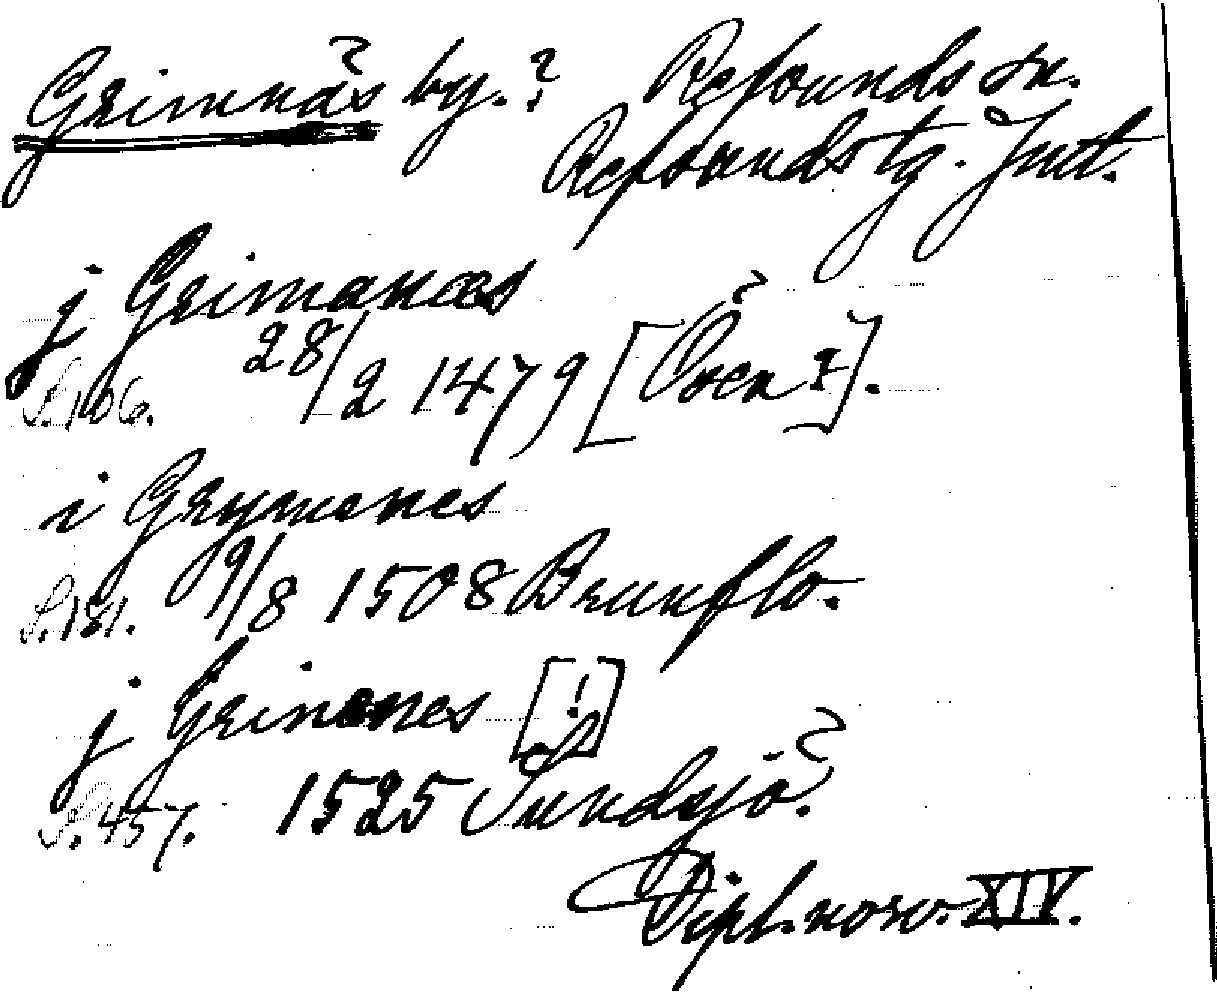 Grimnäs by.? Refsunds sn.
Refsunds tg. Jmt.
j Grimanæs
S. 106. 28/2 1479 [
i Grymenes
S. 181. 9/8 1508 Brunflo.
j Grinenes [!]
S. 457. 1525 Sundsjö?
Dipl. norv. XIV.